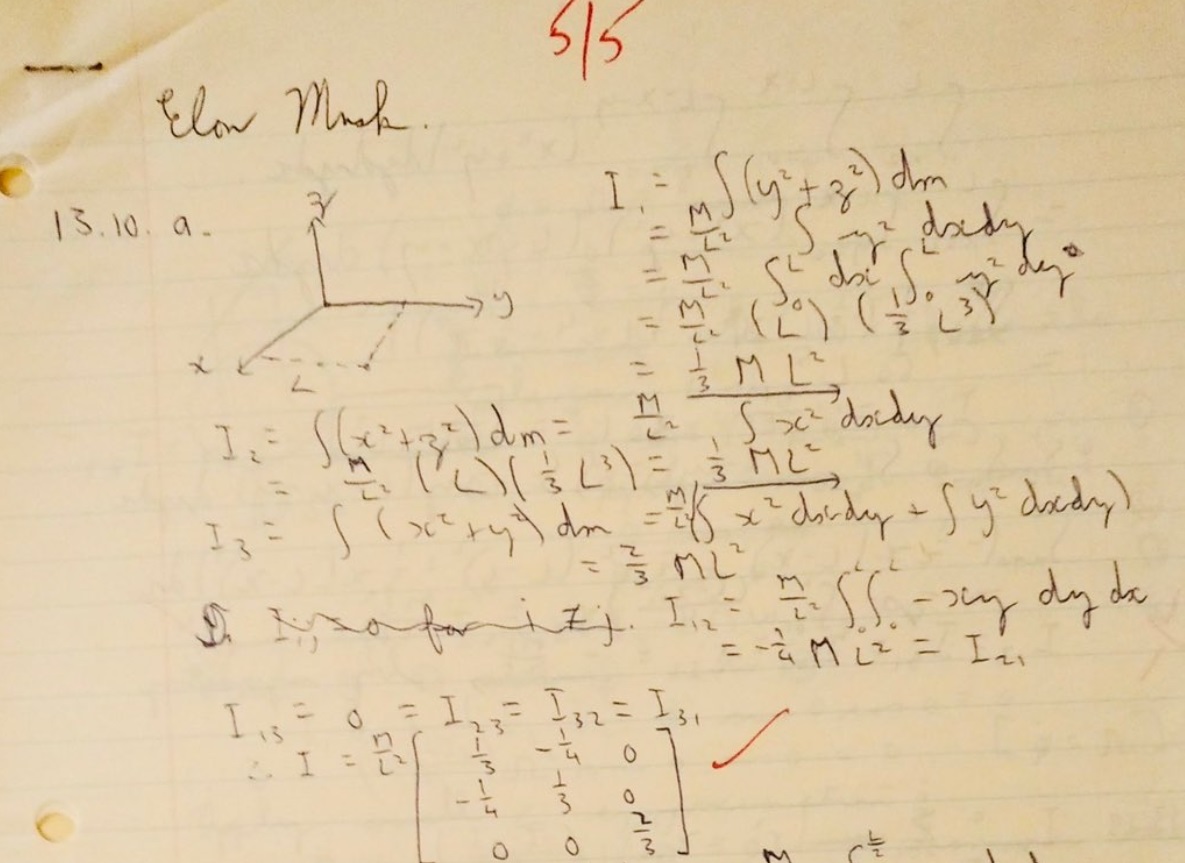 5/5
Elon Musk.
13.10. a.
z
y
x
L
I₁ = ∫(y²+z²) dm
= M/L² ∫ y² dxdy
= M/L² ∫₀ᴸ dx ∫₀ᴸ y² dy
= M/L² (L) (1/3 L³)
= 1/3 M L²
I₂ = ∫(x²+z²) dm = M/L² ∫ x² dxdy
= M/L² (L)(1/3 L³) = 1/3 ML²
I₃ = ∫ (x²+y²) dm = M/L² (∫ x² dxdy + ∫ y² dxdy)
= 2/3 ML²
for i ≠ j. I₁₂ = M/L² ∫₀ᴸ∫₀ᴸ -xy dy dx
= -1/4 M L² = I₂₁
I₁₃ = 0 = I₂₃ = I₃₂ = I₃₁
∴ I = M/L² [ 1/3 -1/4 0
-1/4 1/3 0
0 0 2/3 ]